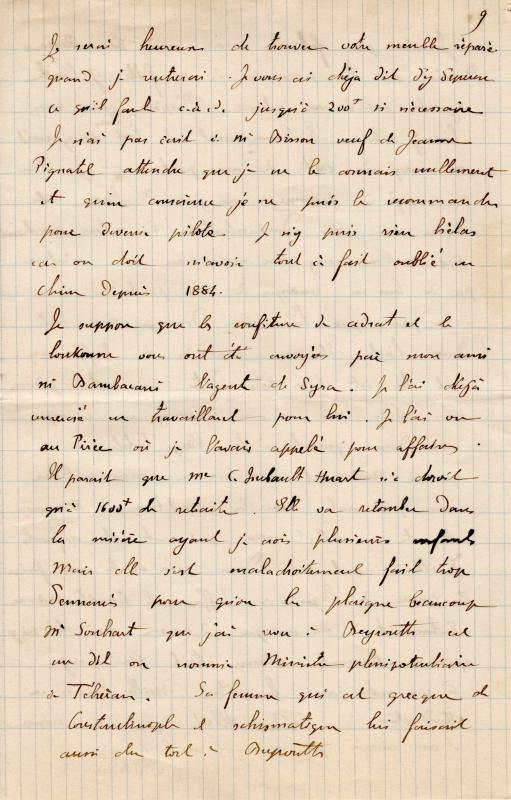 9
Je serai heureux de trouver votre meuble réparé
quand je rentrerai. Je vous ai déjà dit d'y dépenser
ce qu'il faut c.à.d. jusqu'à 200f si nécessaire
Je n'ai pas écrit à Mr Bisson neveu de Jeanne
Pignatel attendu que je ne le connais nullement
et qu'en conscience je ne puis le recommander
pour devenir pilote. Je n'y puis rien hélas
car on doit m'avoir tout à fait oublié en
Chine depuis 1884.
Je suppose que les confiture de cédrat et le
loukoum vous ont été envoyés par mon ami
Mr Bambacari l'agent de Syra. Je l'ai déjà
remercié en travaillant pour lui. Je l'ai vu
au Pirée où je l'avais appelé pour affaires.
Il parait que me C. Imbault Huart n'a droit
qu'à 1600f de retraite. Elle va retomber dans
la misère ayant je crois plusieurs enfants
Mais elle s'est maladroitement fait trop
d'ennemis pour qu'on la plaigne beaucoup
Mr Souhart que j'ai revu à Beyrouth est
me dit on nommé Ministre plénipotentiaire
à Téhéran. Sa femme qui est grecque de
Constantinople et schismatique lui faisait
aussi du tort à Beyrouth